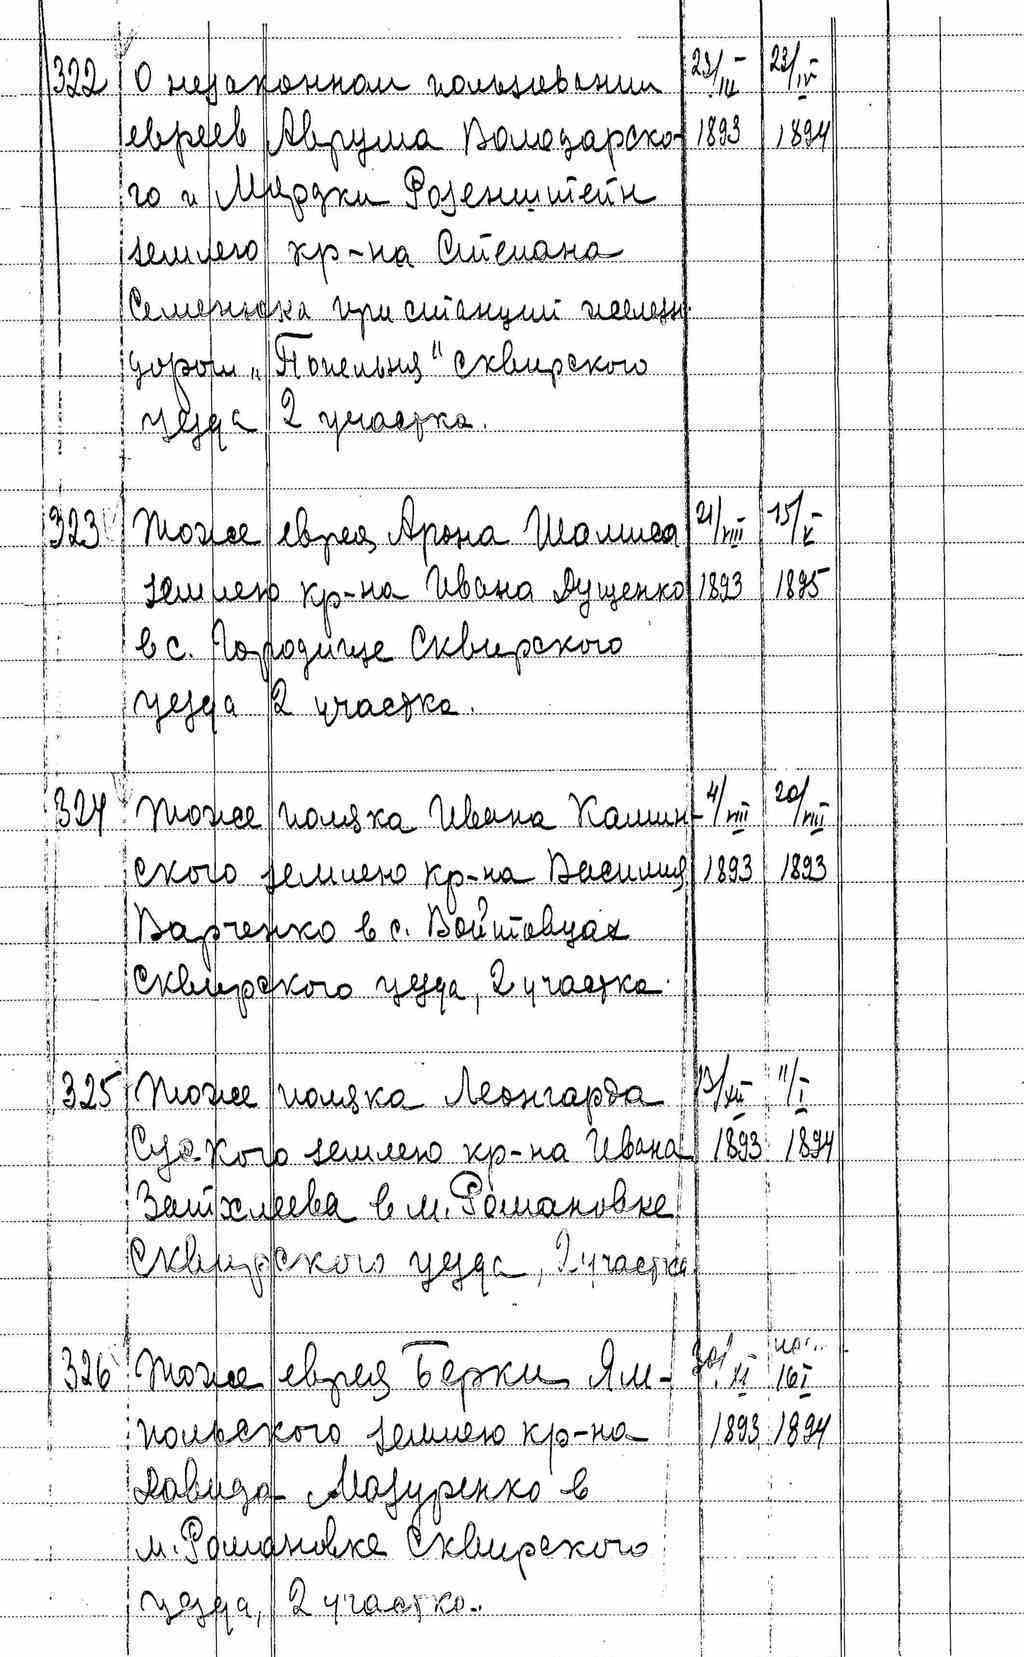 322 О незаконном пользовании 23/IX 23/IV
евреев Аврума Володарско- 1893 1894
го и Мордки Розенштейн
землею кр-на Степана
Семенюка при станции железн.
дороги „Попельня" Сквирского
уезда 2 участка.
323 Тоже еврея Арона Шамиса 21/VIII 15/X
землею кр-на Ивана Дущенко 1893 1895
в с. Городище Сквирского
уезда 2 участка.
324 Тоже поляка Ивана Калин- 4/VIII 20/VIII
ского землею кр-на Василия 1893 1893
Варченко в с. Войтовцах
Сквирского уезда, 2 участка.
325 Тоже поляка Леонгарда 11/I
землею кр-на Ивана 1893 1894
в м. Романовке
Сквирского уезда, 2 участка
326 Тоже еврея Берки Ям- 16I
польского землею кр-на 1893 1894
Давида Мазуренко в
м. Романовке Сквирского
уезда, 2 участка.